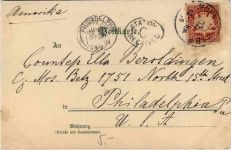 Amerika
PHILADELPHIA
STATION
C
Postkarte.
An
Countess Ella Beroldingen
Mrs Betz 1751 North 15th Street
Philadelphia
U. S. A
Wohnung
(Straße und Hausnummer)